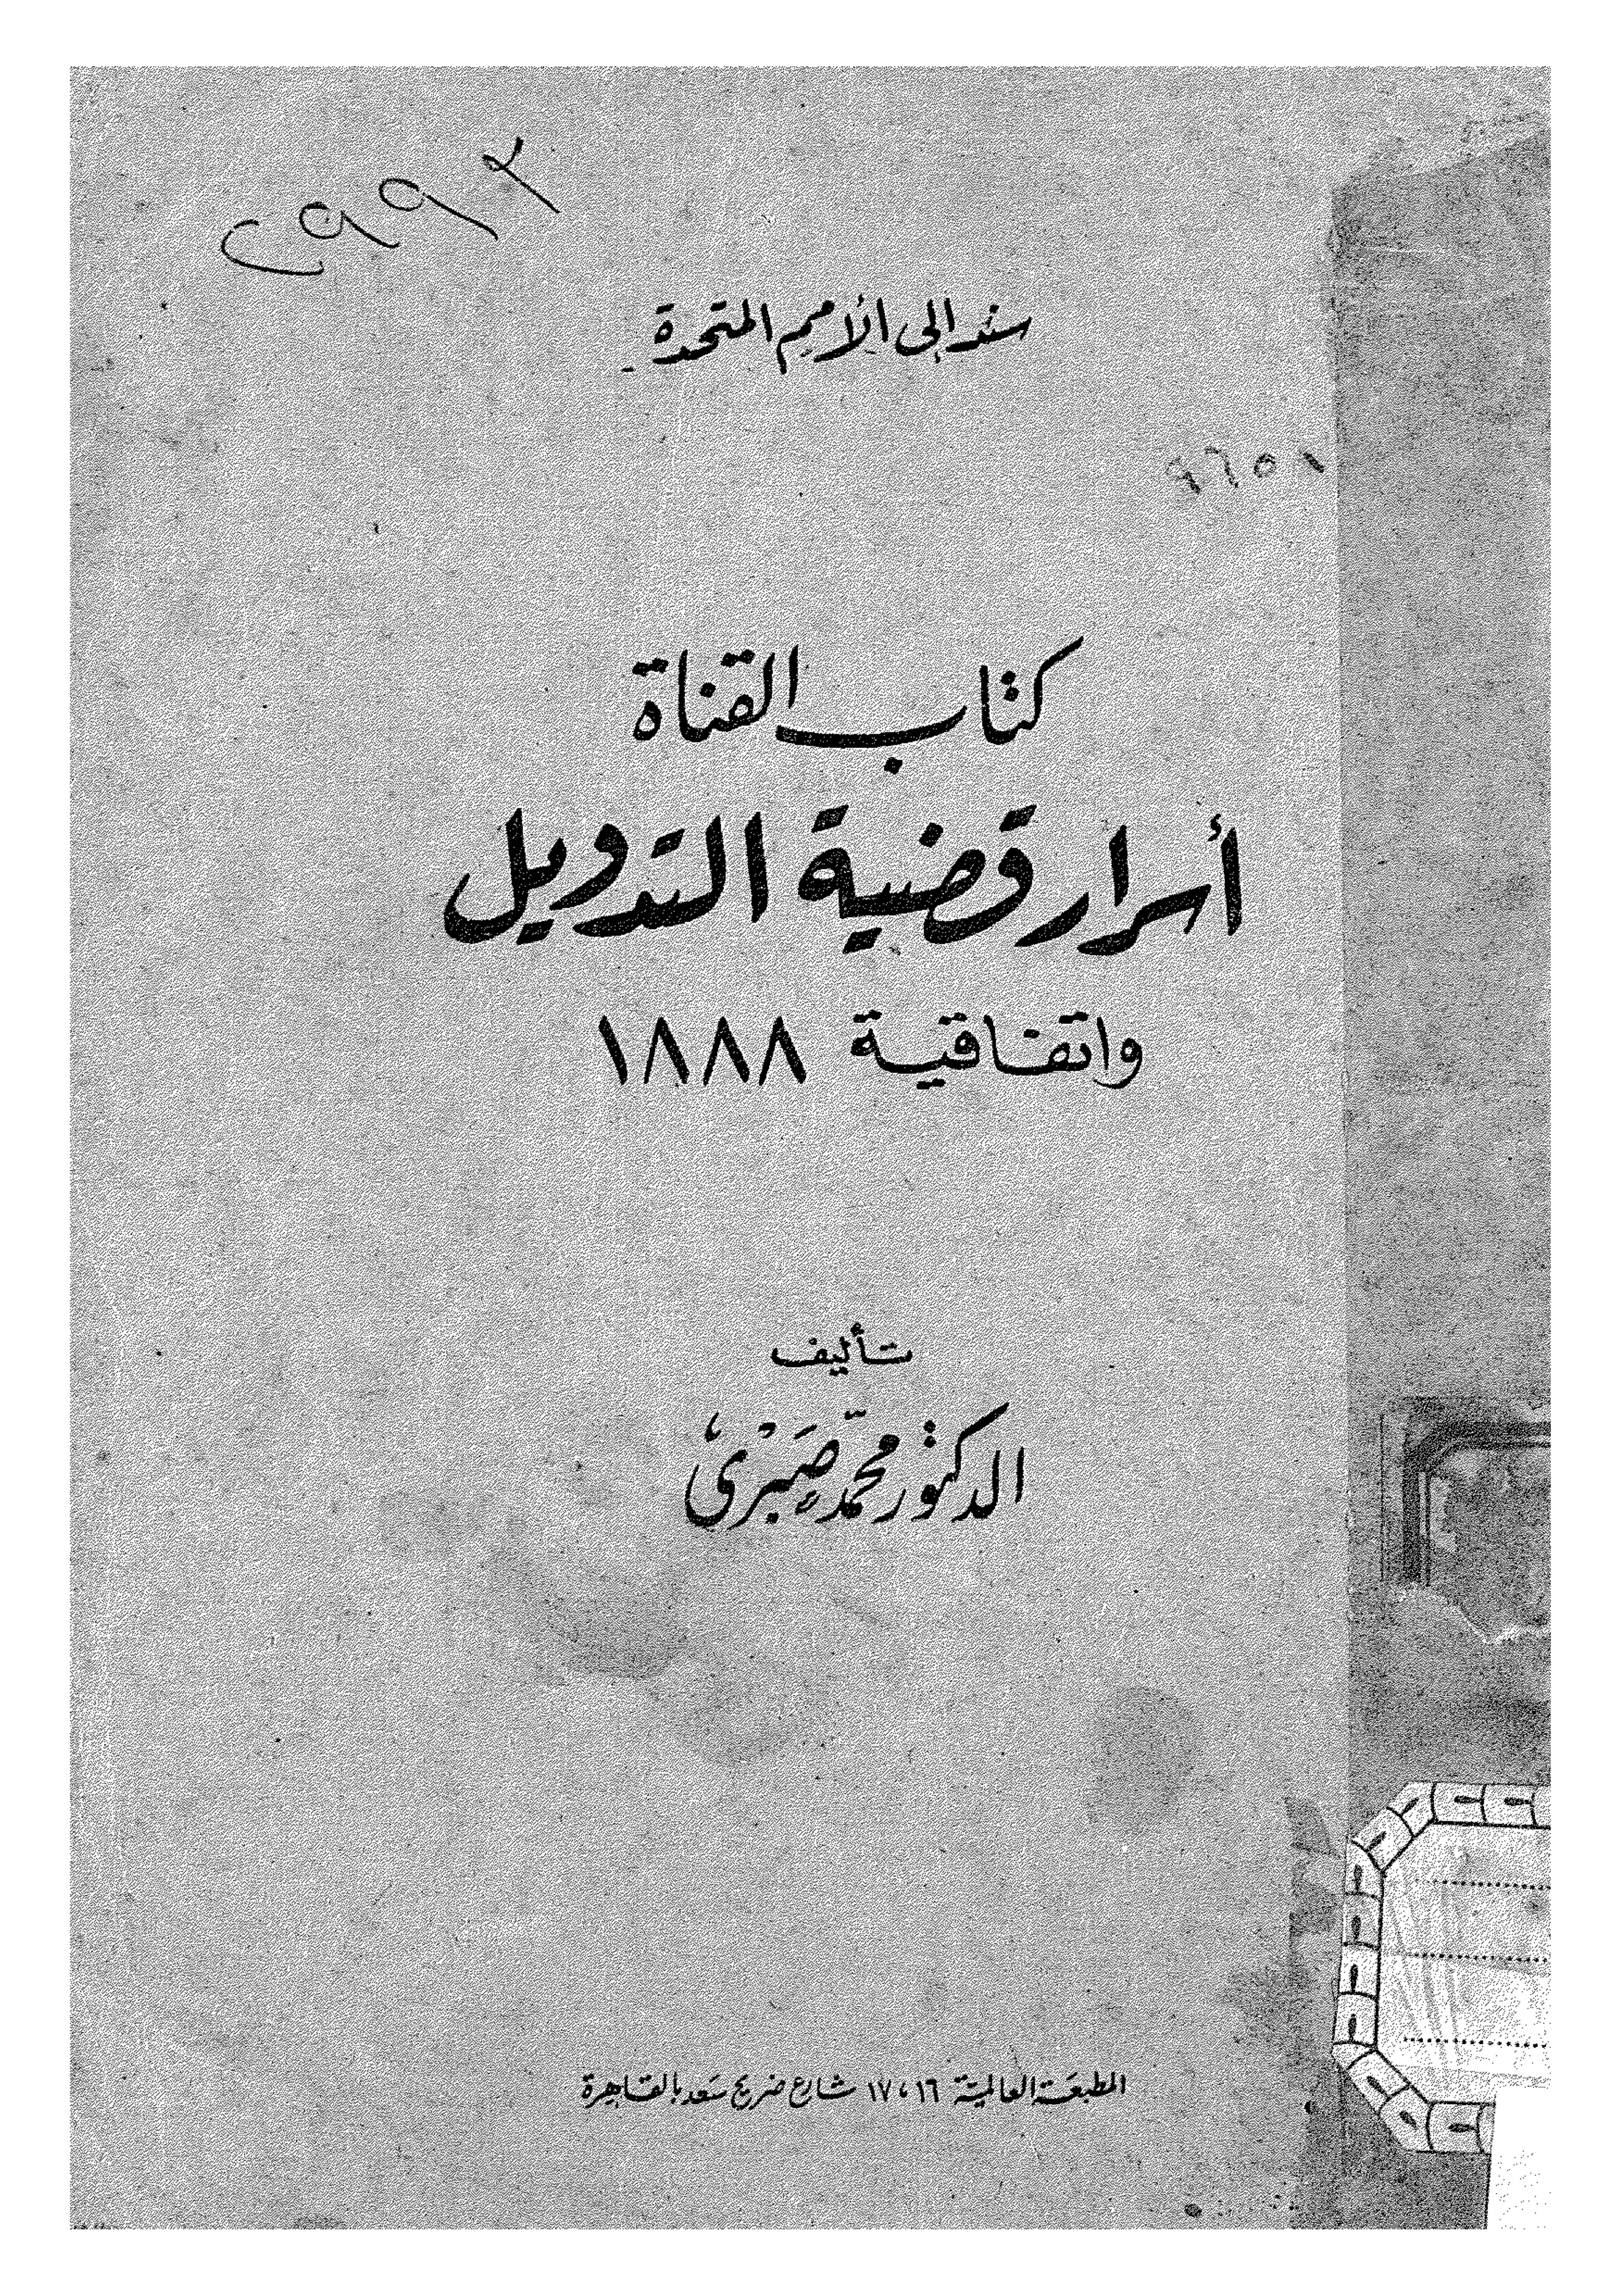 سند إلى الأمم المتحدة
٩٦٥١
كتاب القناة
أسرار قضية التدويل
واتفاقية ١٨٨٨
تأليف
الدكتور محمّد صَبْرى
المطبعة العالمية ١٦، ١٧ شارع ضريح سعد بالقاهرة